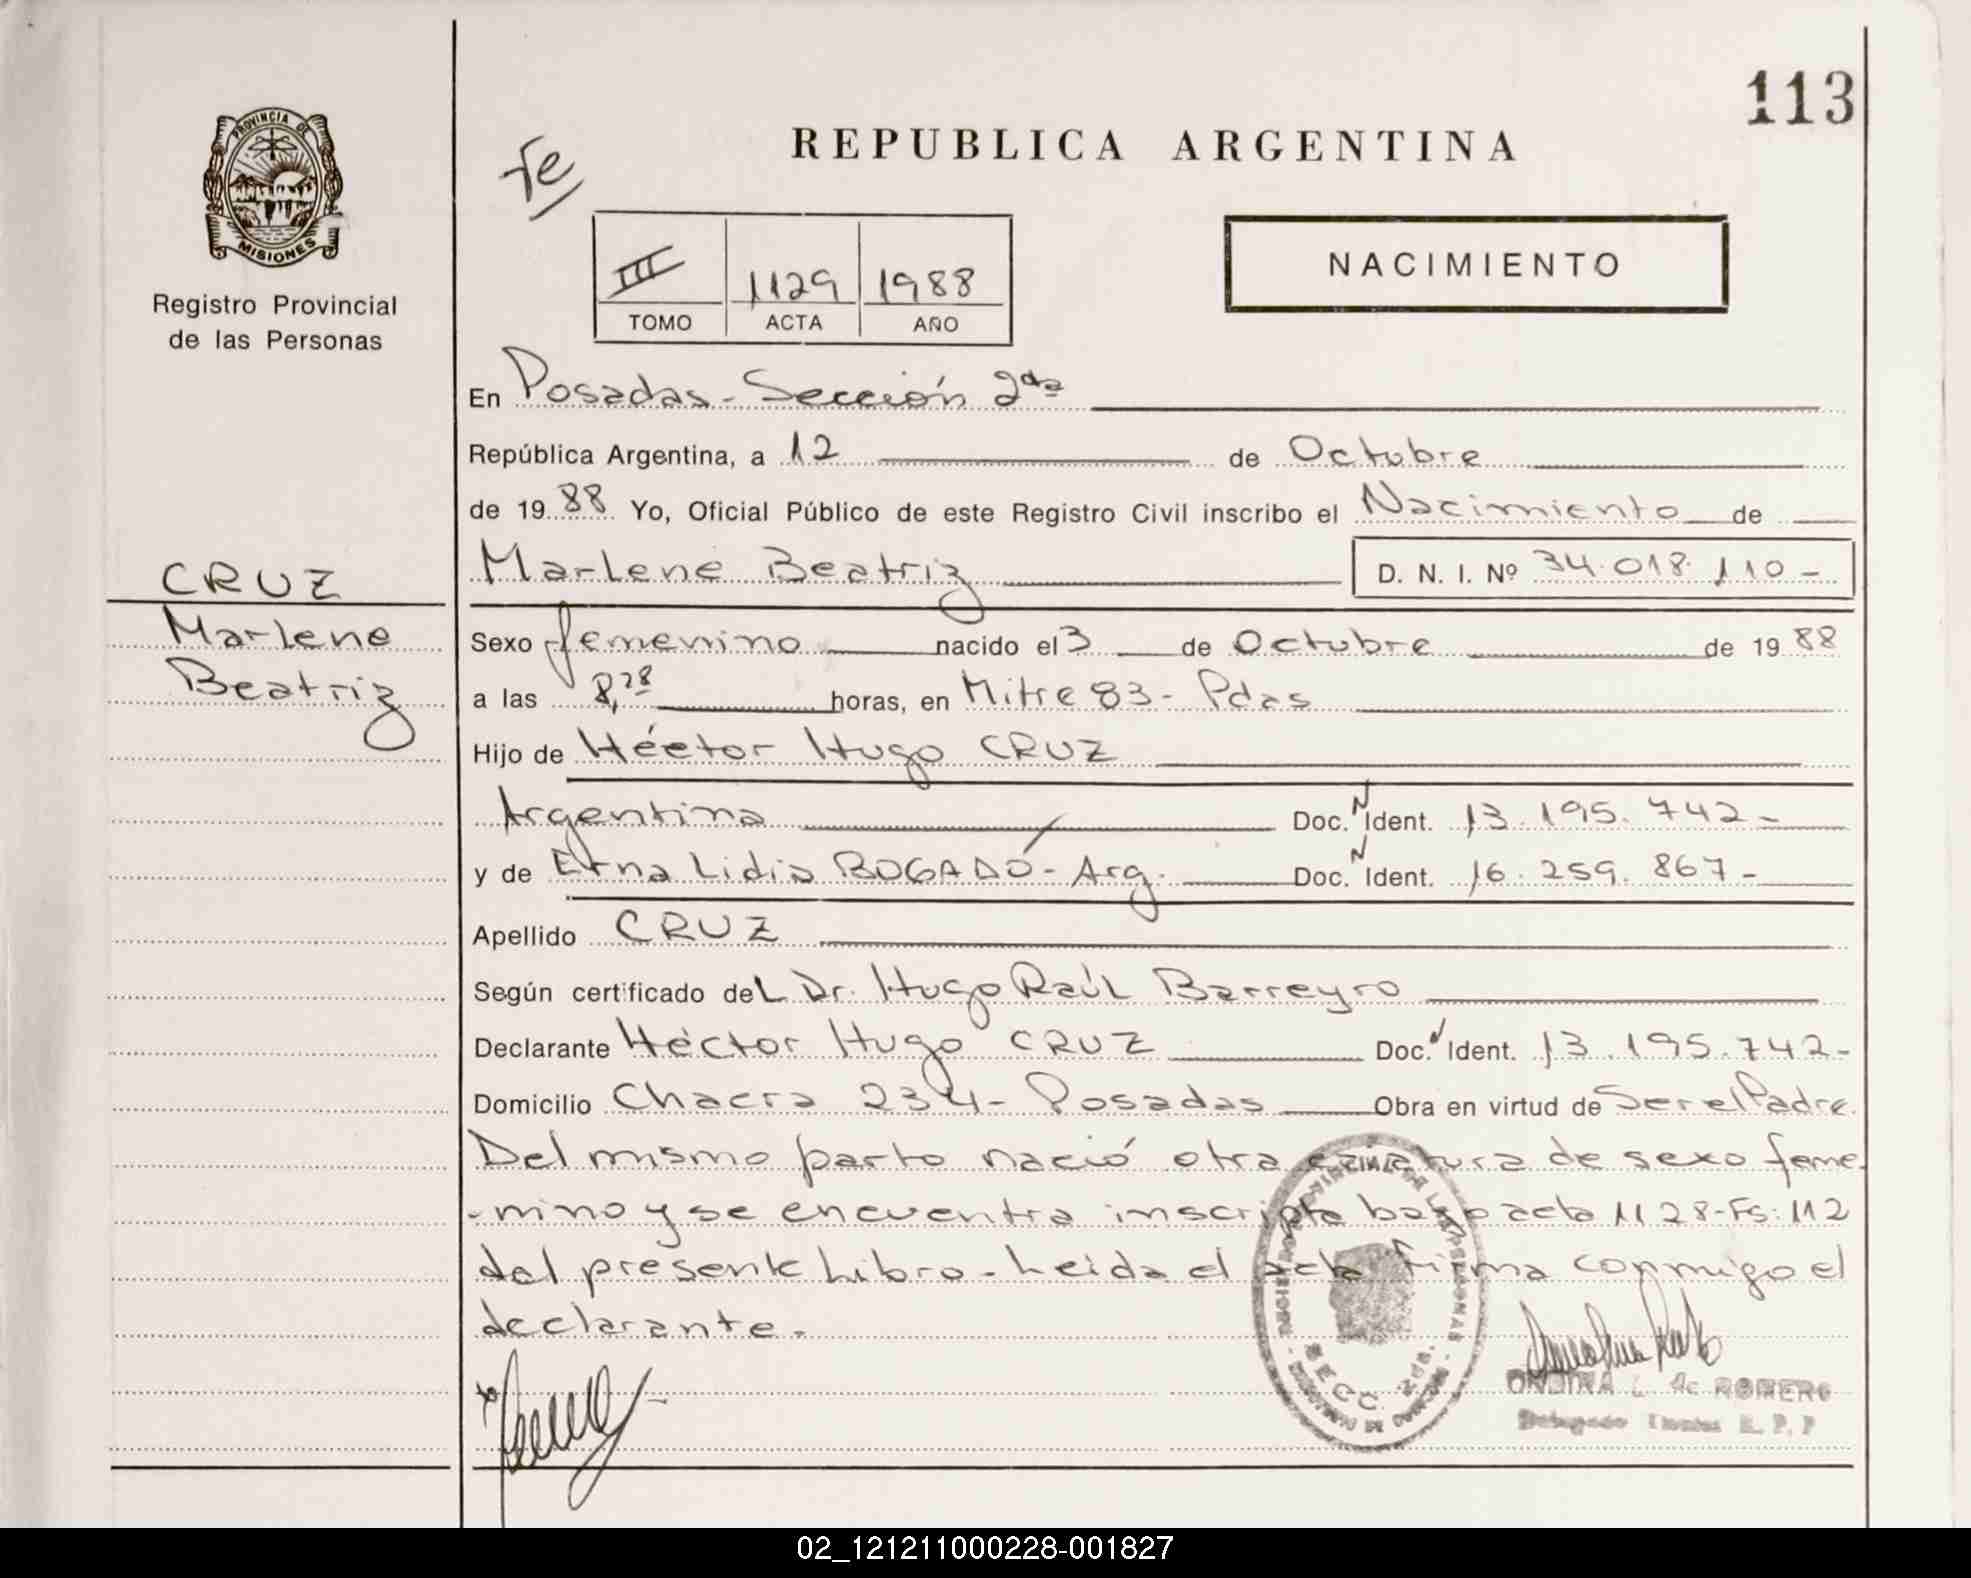 113
PROVINCIA DE
MISIONES
Registro Provincial
de las Personas
Fe
REPUBLICA ARGENTINA
III 1129 1988
TOMO ACTA AÑO
NACIMIENTO
En Posadas - Sección 2da
República Argentina, a 12 de Octubre
de 19 88 Yo, Oficial Público de este Registro Civil inscribo el Nacimiento de
Marlene Beatriz D. N. I. Nº 34.018.110-
CRUZ
Marlene
Beatriz
Sexo femenino nacido el 3 de Octubre de 19 88
a las 8,28 horas, en Mitre 83 - Pdas
Hijo de Héctor Hugo CRUZ
Argentina Doc. N Ident. 13.195.742-
y de Erna Lidia BOGADO - Arg. Doc. N Ident. 16.259.867-
Apellido CRUZ
Según certificado del Dr. Hugo Raúl Barreyro
Declarante Héctor Hugo CRUZ Doc. N Ident. 13.195.742-
Domicilio Chacra 234 - Posadas Obra en virtud de Ser el Padre.
Del mismo parto nació otra criatura de sexo feme-
-nino y se encuentra inscripta bajo acta 1128-Fs: 112
del presente Libro - Leida el acta firma conmigo el
declarante.
SECC. 2da.
ONDINA L. de ROMERO
02_121211000228-001827